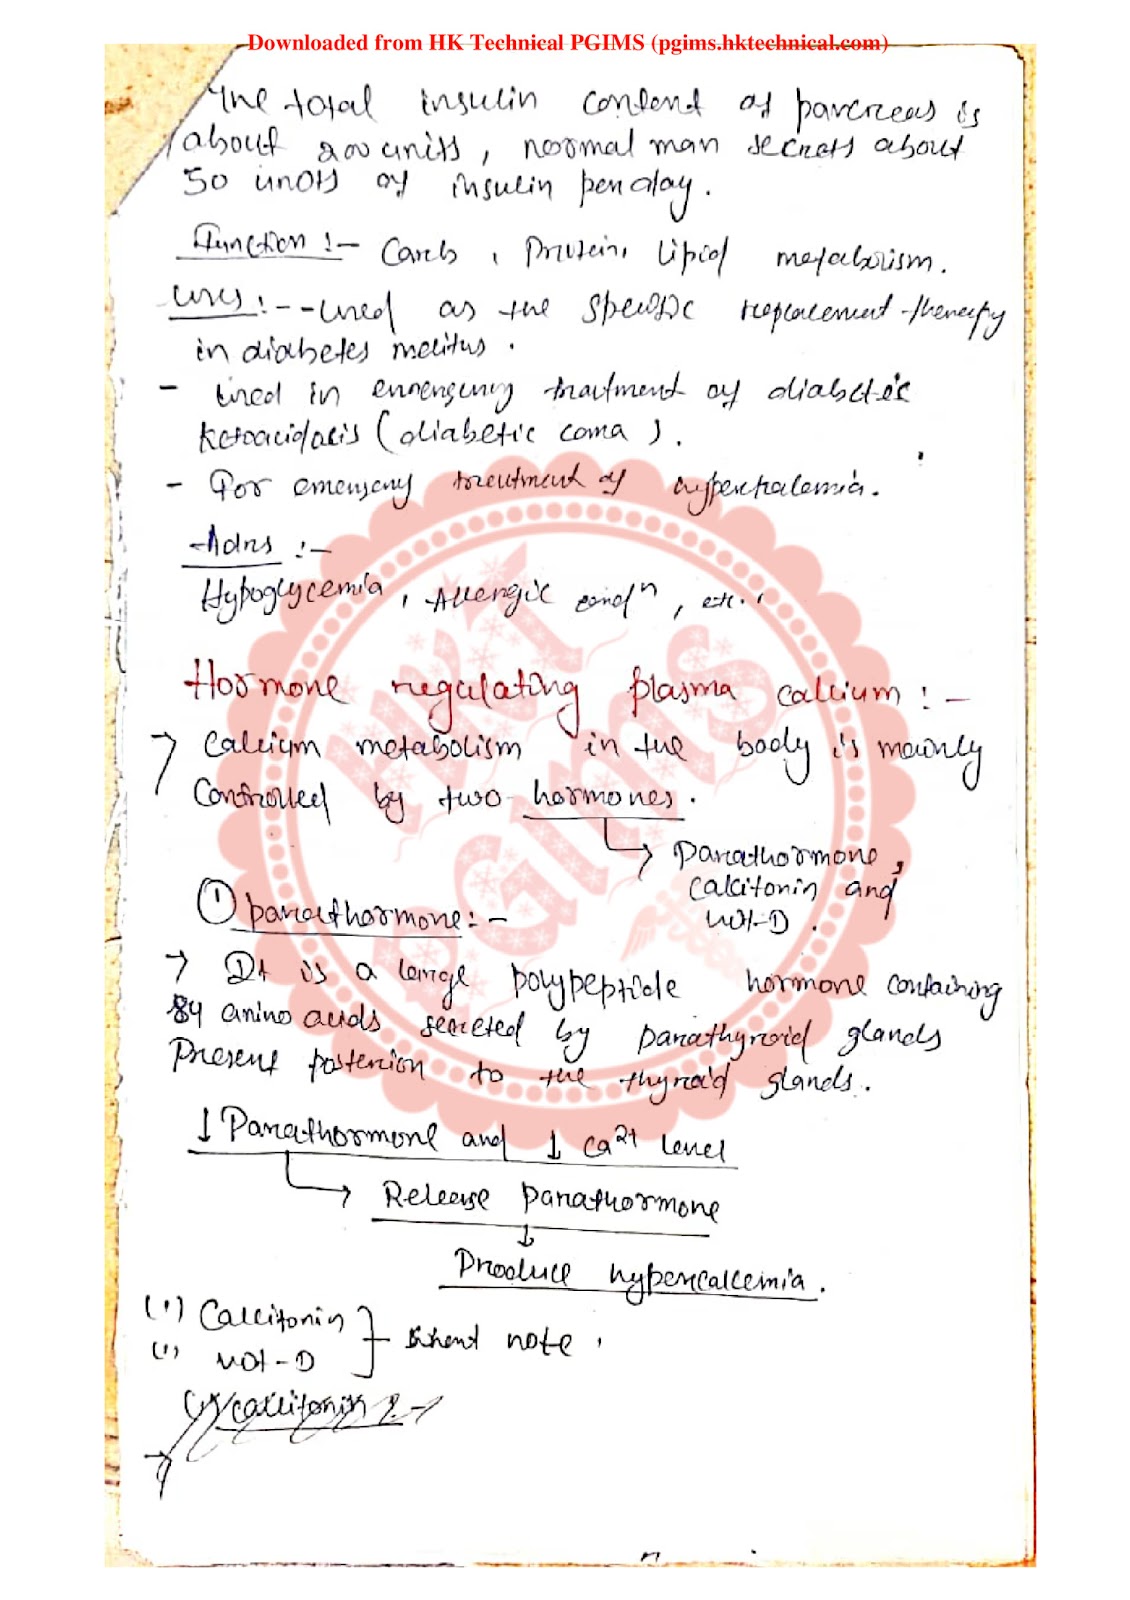 Downloaded from HK Technical PGIMS (pgims.hktechnical.com)
The total insulin content of pancreas is
about 200 units, normal man secrets about
50 units of insulin per day.
Function :- Carb, Protein, Lipid metabolism.
Uses :- - Used as the specific replacement therapy
in diabetes melitus.
- Used in emergency treatment of diabetic
Ketoacidosis (diabetic coma).
- For emergency treatment of hyperkalemia.
Adrs :-
Hypoglycemia, Allergic condn, etc..
Hormone regulating plasma calcium :-
→ Calcium metabolism in the body is mainly
controlled by two hormones.
→ Parathormone,
calcitonin and
vit-D.
① parathormone :-
→ It is a large polypeptide hormone containing
84 amino acids secreted by parathyroid glands
Present posterior to the thyroid glands.
↓ Parathormone and ↓ Ca2+ level
→ Release parathormone
↓
Produce hypercalcemia.
(1) Calcitonin
(1) vit-D
short note.
calcitonin :-
→
HKT
PGIMS